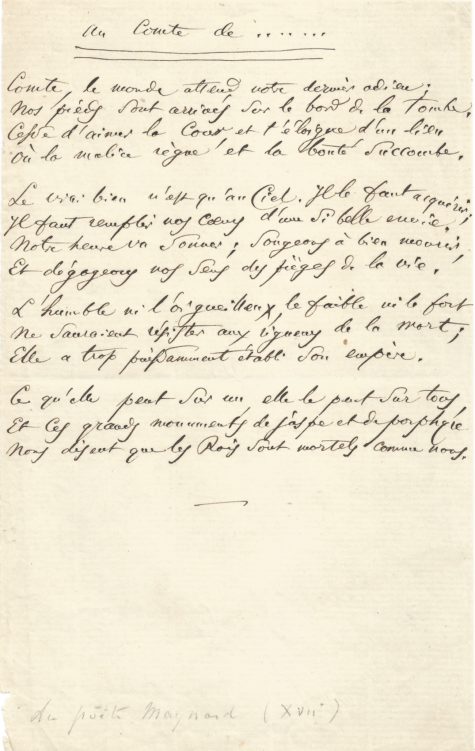 Au Comte de .......
Comte, le monde attend notre dernier adieu ;
Nos pieds sont arrivés sur le bord de la Tombe.
Cesse d'aimer la Cour et t'éloigne d'un lieu
Où la malice règne et la bonté succombe.
Le vrai bien n'est qu'au Ciel. Il le faut acquérir,
Il faut remplir nos cœurs d'une si belle envie.
Notre heure va sonner ; songeons à bien mourir
Et dégageons nos sens des pièges de la vie.
L'humble ni l'orgueilleux, le faible ni le fort
Ne sauraient résister aux rigueurs de la mort ;
Elle a trop puissamment établi son empire.
Ce qu'elle peut sur un elle le peut sur tous
Et ces grands monuments de jaspe et de porphyre
Nous disent que les Rois sont mortels comme nous.
du poète Maynard (XVIIe)